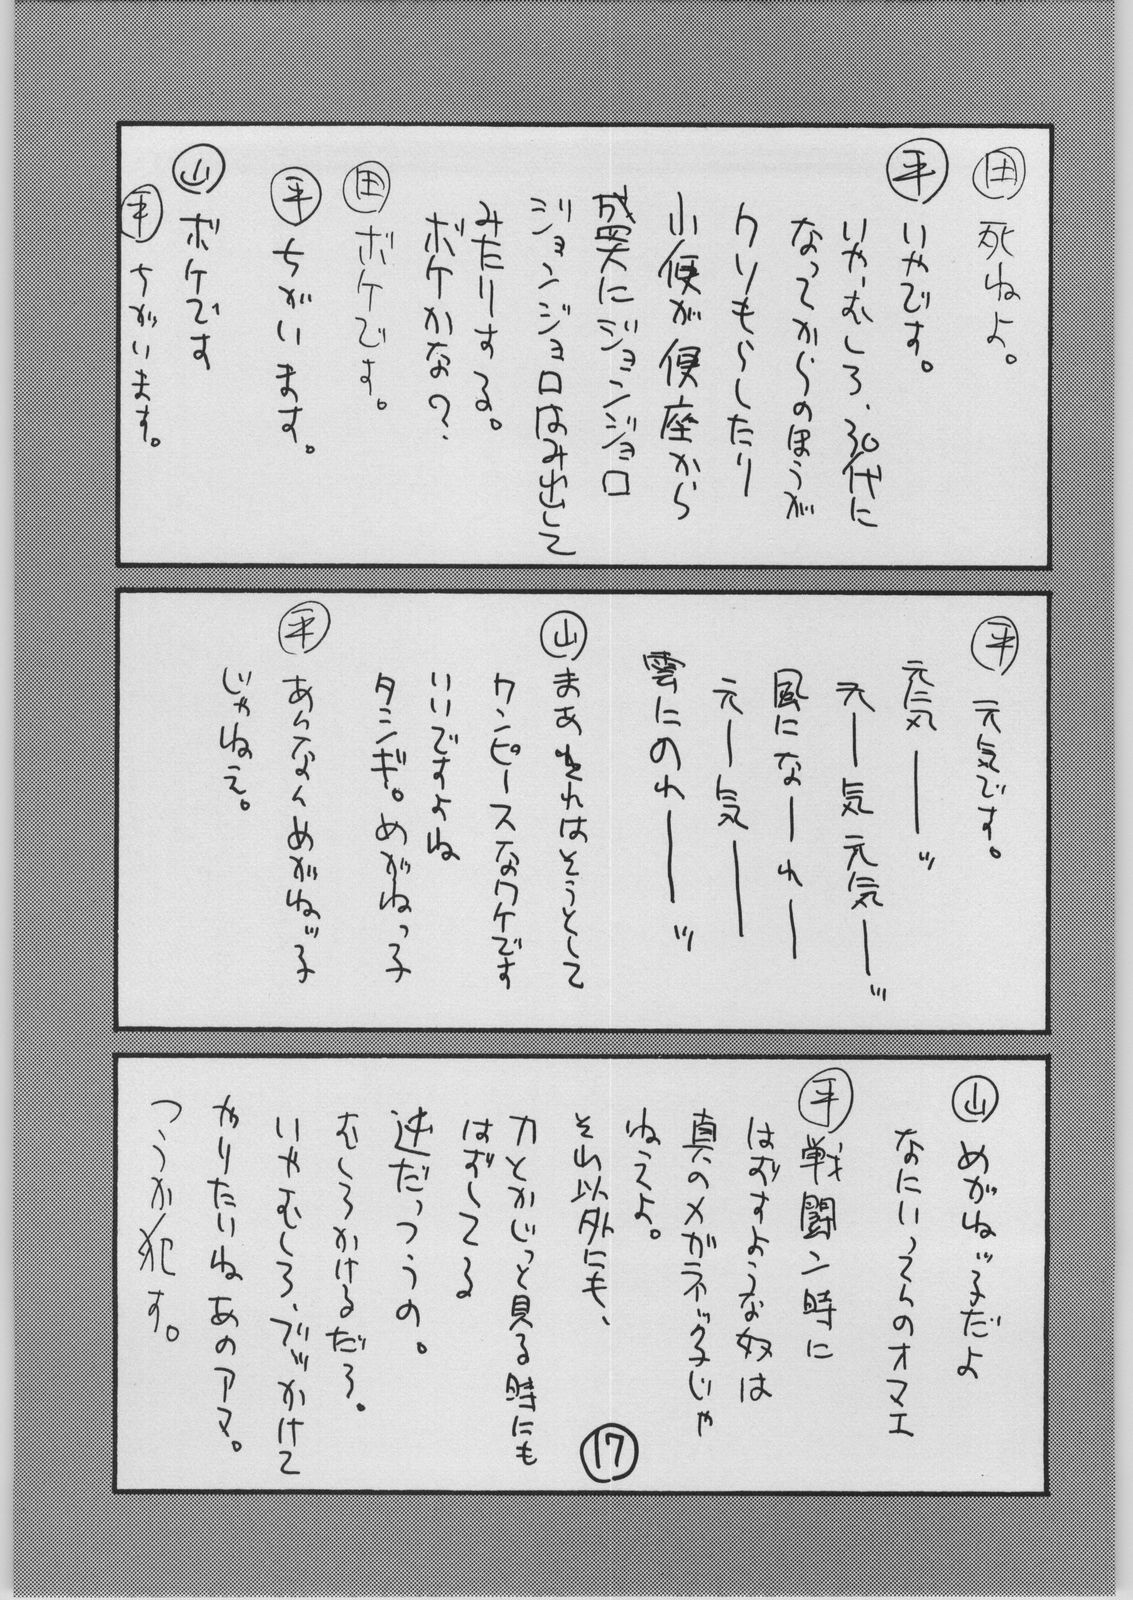 田 死ねよ。
平 いやです。
いやむしろ、30代に
なってからのほうが
クソもらしたり
小便が便座から
盛大にジョンジョロ
ジョンジョロはみ出して
みたりする。
ボケかな?
田 ボケです。
平 ちがいます。
山 ボケです
平 ちがいます。
平 元気です。
元気――ッ
元―気元気―ッ
風になーれ―
元―気――
雲にのれ――ッ
山 まあそれはそうとして
ワンピースなワケです
いいですよね
タシギ。めがねっ子
平 あんなんめがねッ子
じゃねえ。
山 めがねッ子だよ
なにいってらのオマエ
平 戦闘ン時に
はずすような奴は
真のメガネッ子じゃ
ねえよ。
それ以外にも、
力とかじっと見る時にも
はずしてる
逆だっつうの。
むしろかけるだろ。
いやむしろ、ブッかけて
やりたいねあのアマ。
つうか犯す。
17